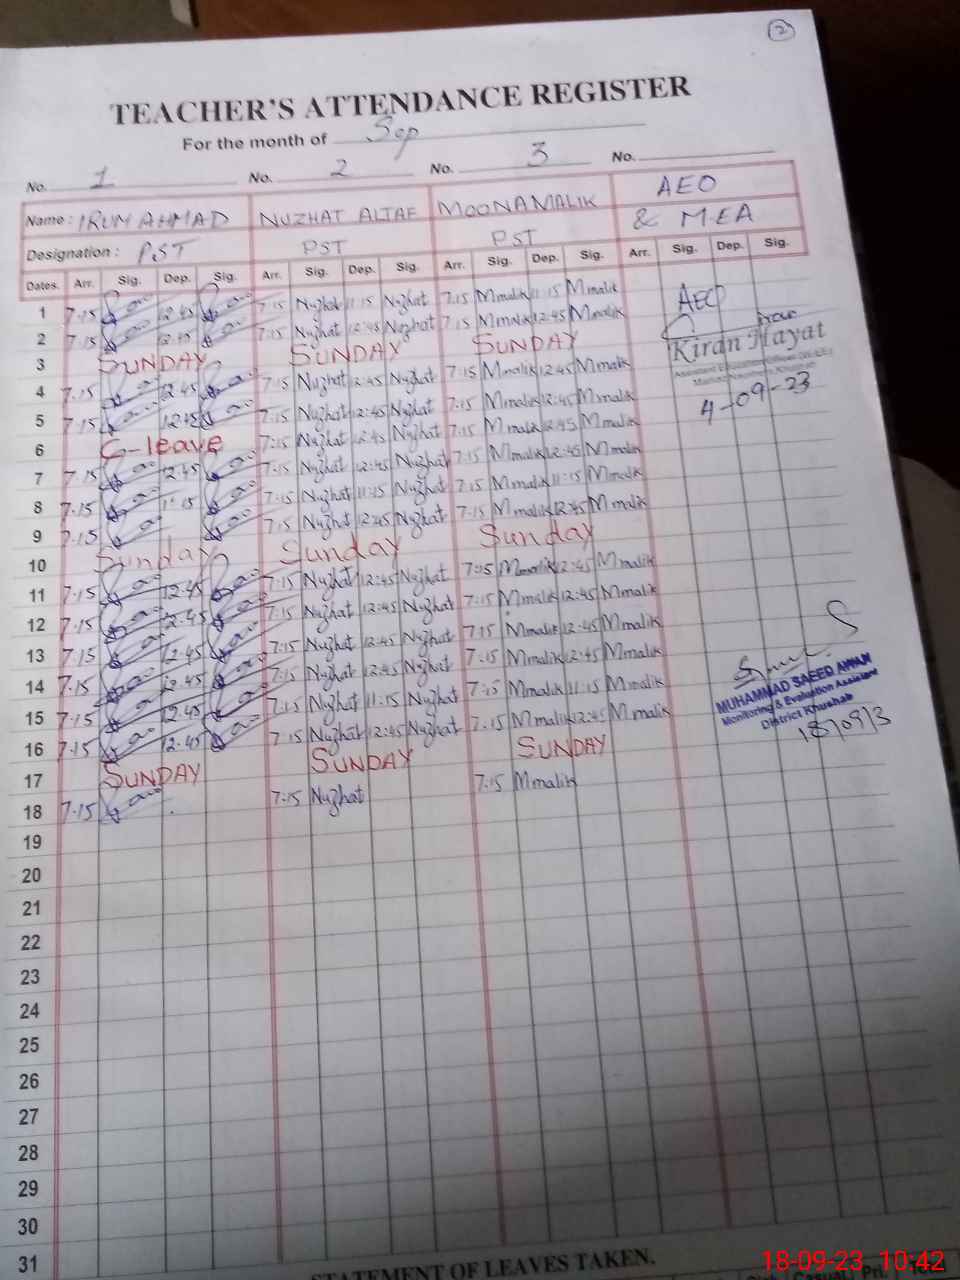 2
TEACHER'S ATTENDANCE REGISTER
For the month of Sep
No. 1 No. 2 No. 3 No.
Name : IRUM AHMAD NUZHAT ALTAF MOONA MALIK AEO
Designation : PST PST PST & M-EA
Dates. Arr. Sig. Dep. Sig. Arr. Sig. Dep. Sig. Arr. Sig. Dep. Sig. Arr. Sig. Dep. Sig.
1 7.15 7:15 Nuzhat 11:15 Nuzhat 7.15 Mmalik 11:15 Mmalik
2 7.15 12.45 7:15 Nuzhat 12:45 Nuzhat 7.15 Mmalik 12:45 Mmalik
3 SUNDAY SUNDAY SUNDAY
4 7.15 12.45 7:15 Nuzhat 12:45 Nuzhat 7.15 Mmalik 12:45 Mmalik
5 7.15 12.45 7:15 Nuzhat 12:45 Nuzhat 7.15 Mmalik 12:45 Mmalik
6 C-leave 7:15 Nuzhat 12:45 Nuzhat 7.15 Mmalik 12:45 Mmalik
7 7.15 12.45 7:15 Nuzhat 12:45 Nuzhat 7.15 Mmalik 12:45 Mmalik
8 7.15 11.15 7:15 Nuzhat 11:15 Nuzhat 7.15 Mmalik 11:15 Mmalik
9 7.15 7:15 Nuzhat 12:45 Nuzhat 7.15 Mmalik 12:45 Mmalik
10 Sunday Sunday Sunday
11 7.15 12.45 7:15 Nuzhat 12:45 Nuzhat 7:15 Mmalik 12:45 Mmalik
12 7.15 12.45 7:15 Nuzhat 12:45 Nuzhat 7.15 Mmalik 12:45 Mmalik
13 7.15 12.45 7:15 Nuzhat 12:45 Nuzhat 7.15 Mmalik 12:45 Mmalik
14 7.15 12.45 7:15 Nuzhat 12:45 Nuzhat 7.15 Mmalik 12:45 Mmalik
15 7.15 12.45 7:15 Nuzhat 11:15 Nuzhat 7.15 Mmalik 11:15 Mmalik
16 7.15 12.45 7:15 Nuzhat 12:45 Nuzhat 7.15 Mmalik 12:45 Mmalik
17 SUNDAY SUNDAY SUNDAY
18 7.15 7:15 Nuzhat 7.15 Mmalik
19
20
21
22
23
24
25
26
27
28
29
30
31
AEO
Kiran Hayat
4-09-23
MUHAMMAD SAEED AWAN
Monitoring & Evaluation Assistant
District Khushab
STATEMENT OF LEAVES TAKEN.
18-09-23 10:42